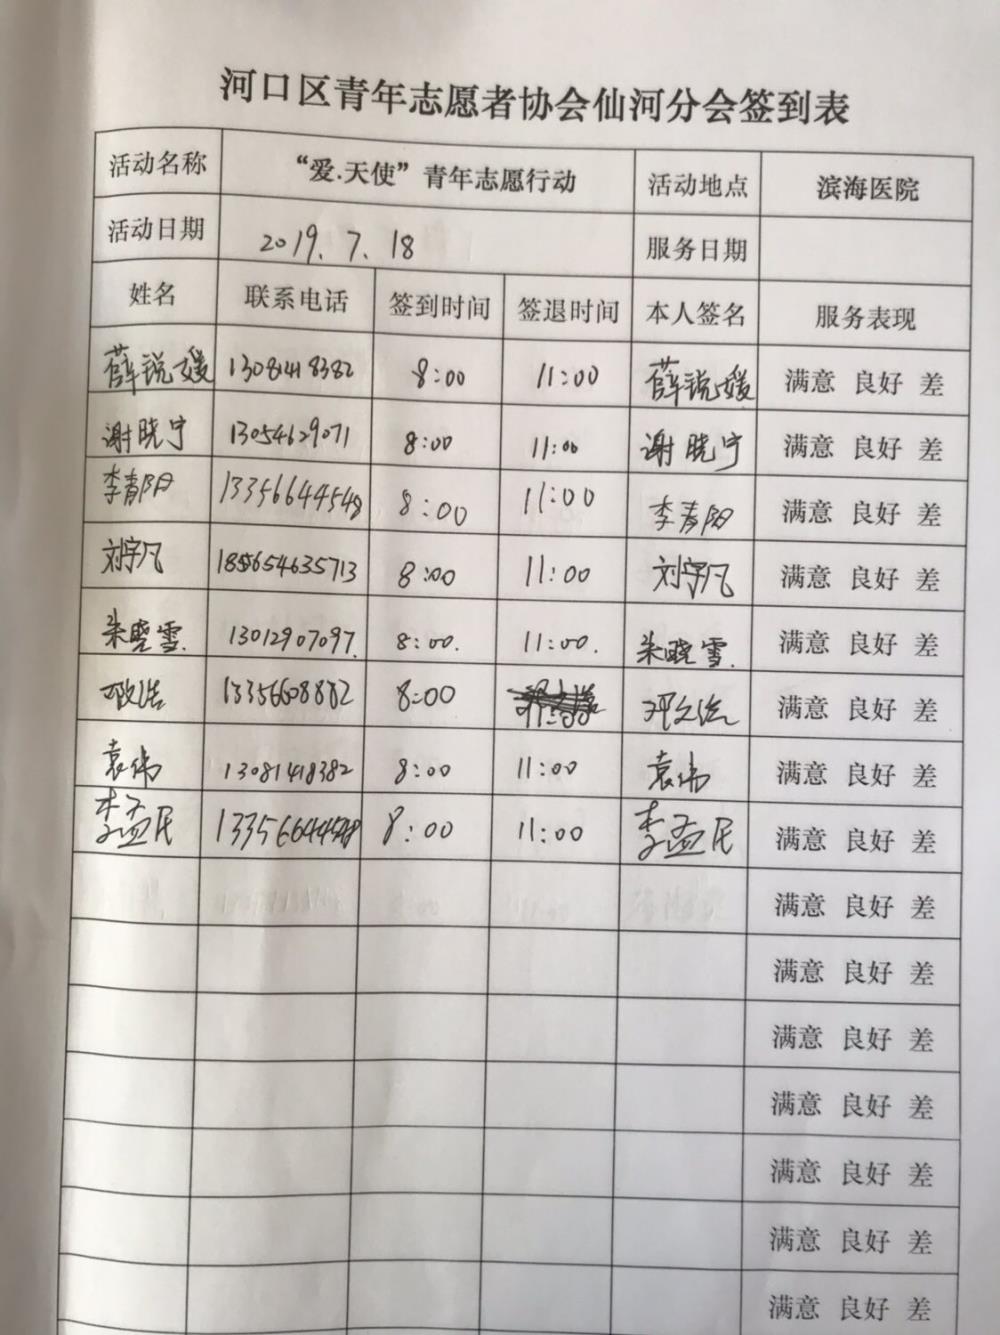 河口区青年志愿者协会仙河分会签到表
活动名称 “爱.天使”青年志愿行动 活动地点 滨海医院
活动日期 2019.7.18 服务日期
姓名 联系电话 签到时间 签退时间 本人签名 服务表现
薛锐媛 13081418382 8:00 11:00 薛锐媛 满意 良好 差
谢晓宁 13054629071 8:00 11:00 谢晓宁 满意 良好 差
李青阳 13356644548 8:00 11:00 李青阳 满意 良好 差
刘宇凡 8:00 11:00 刘宇凡 满意 良好 差
朱晓雪. 13012907097. 8:00. 11:00. 朱晓雪. 满意 良好 差
13356608882 8:00 满意 良好 差
袁伟 13081418382 8:00 11:00 袁伟 满意 良好 差
李孟民 13356644548 8:00 11:00 李孟民 满意 良好 差
满意 良好 差
满意 良好 差
满意 良好 差
满意 良好 差
满意 良好 差
满意 良好 差
满意 良好 差